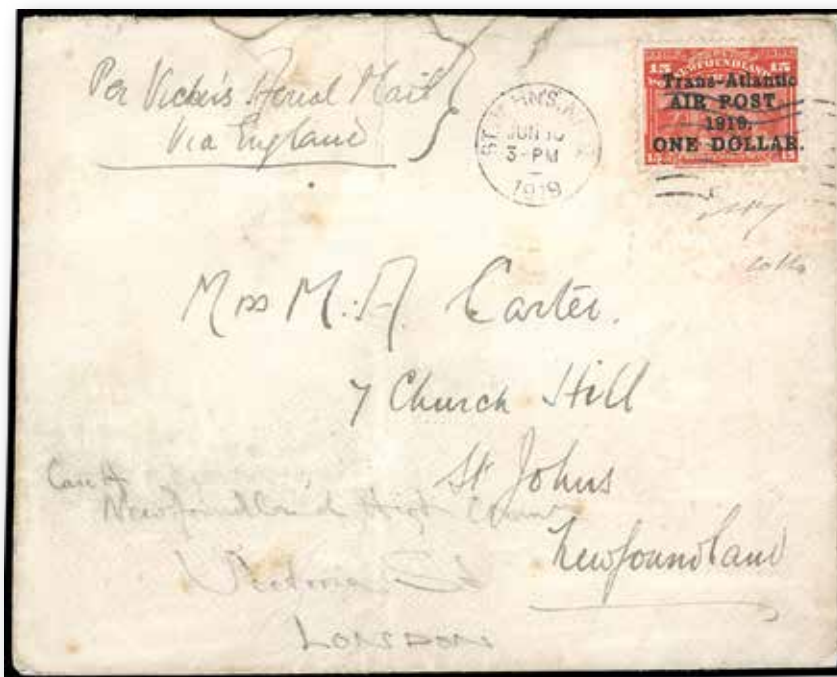 Per Vickers Aerial Mail
Via England
ST. JOHN'S, N.F.
JUN 10
3-PM
1919
15 NEWFOUNDLAND 15
Trans-Atlantic
AIR POST,
1919.
ONE DOLLAR.
15 15
Mrs M. A. Carter.
7 Church Hill
St Johns
Newfoundland
Newfoundland High
Victoria St
LONDON